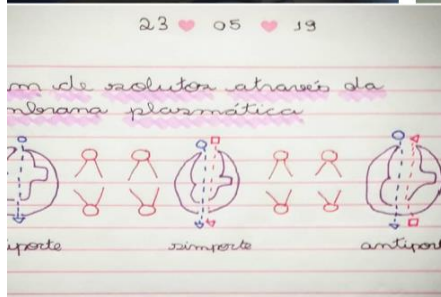 23 05 19
m de solutos através da
mbrana plasmática
iporte simporte antiport